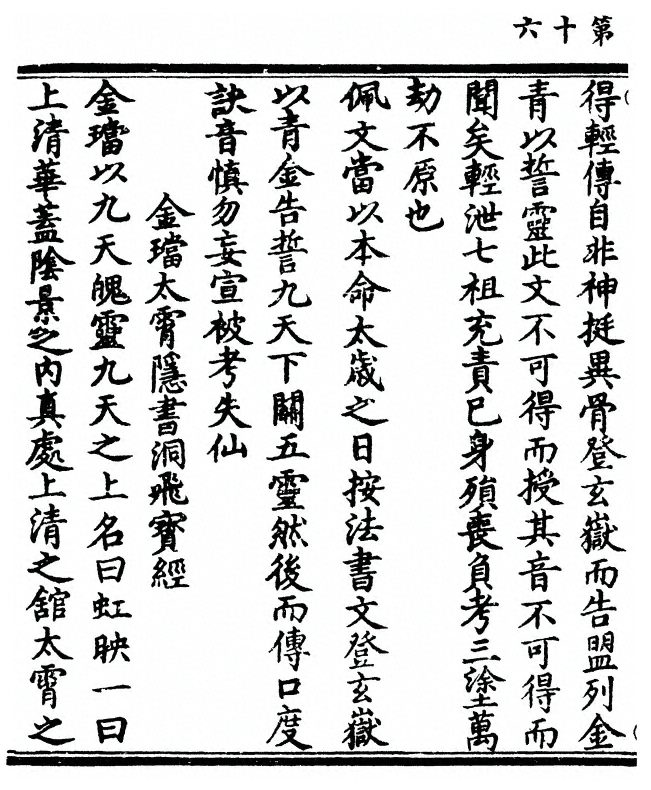 第十六
得輕傳自非神挺異骨登玄嶽而告盟列金
青以誓靈此文不可得而授其音不可得而
聞矣輕泄七祖充責已身殞喪負考三塗萬
劫不原也
佩文當以本命太歲之日按法書文登玄嶽
以青金告誓九天下關五靈然後而傳口度
訣音慎勿妄宣被考失仙
金璫太霄隱書洞飛寶經
金璫以九天魄靈九天之上名曰虹映一曰
上清華蓋陰景之內真處上清之舘太霄之